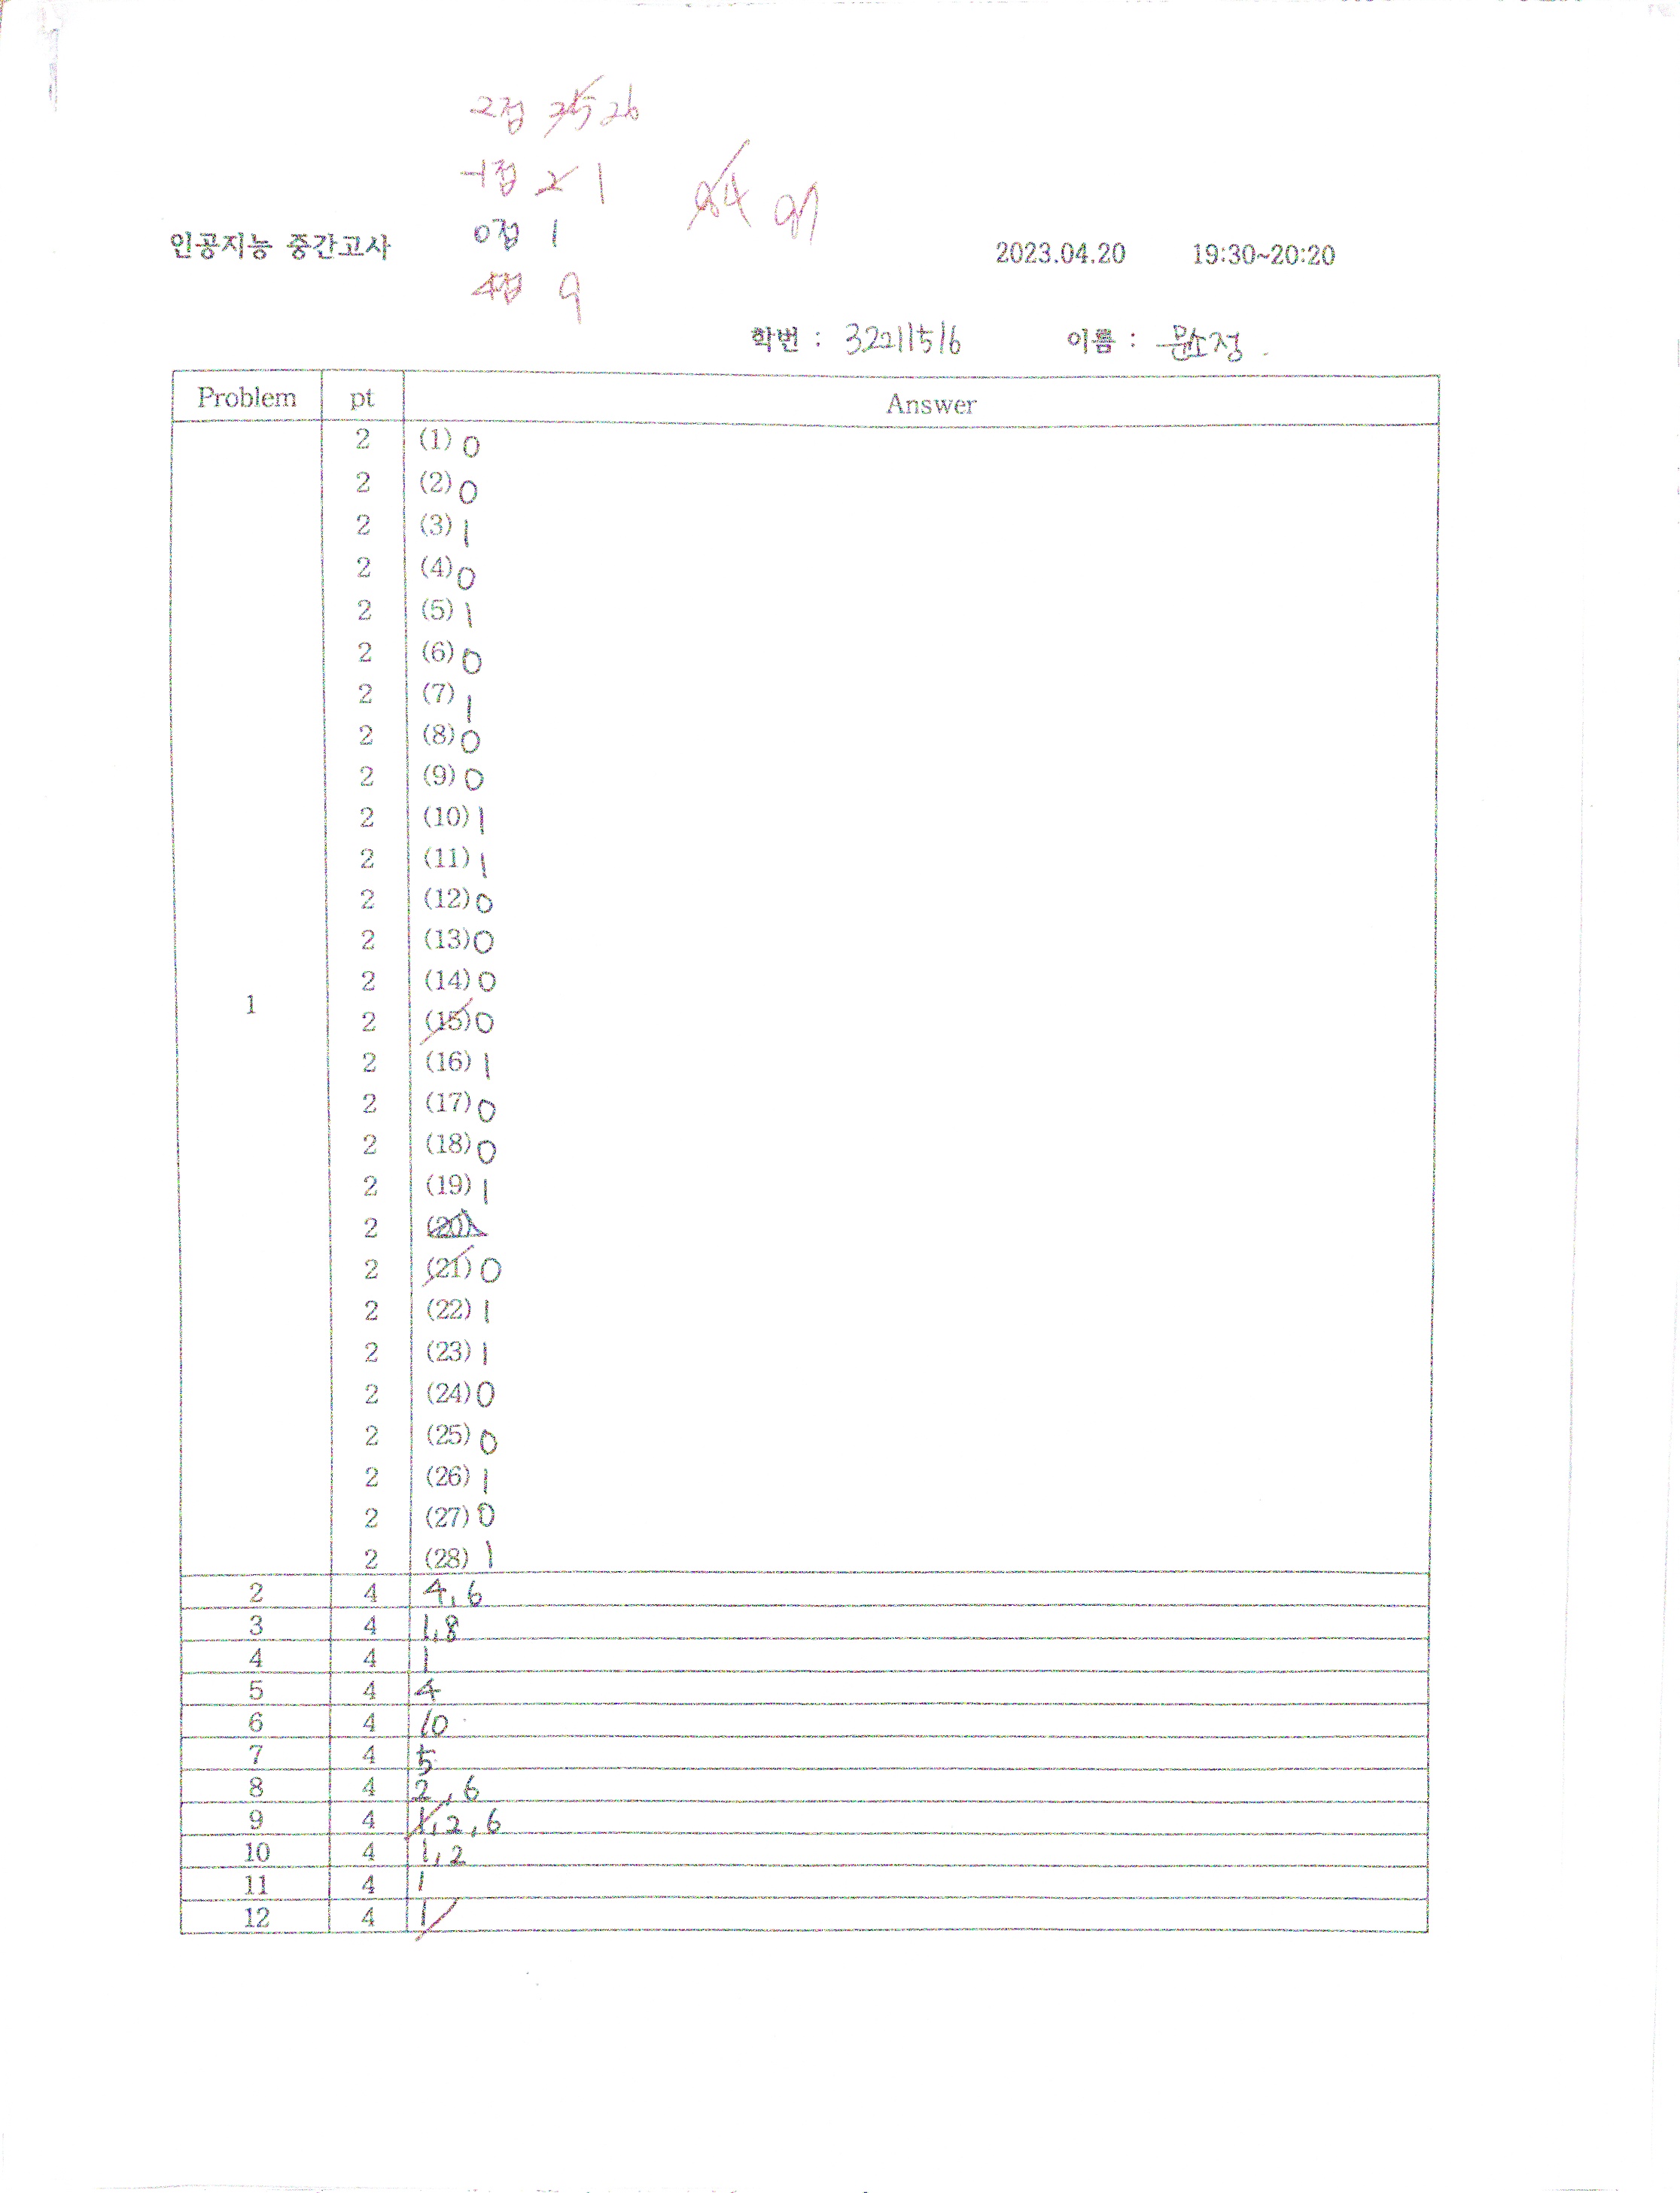 2점 26
-1점 2 1
84 87
0점 1
인공지능 중간고사 2023.04.20 19:30~20:20
4점 9
학번 : 32211516 이름 : 문소정
Problem pt Answer
2 (1) 0
2 (2) 0
2 (3) 1
2 (4) 0
2 (5) 1
2 (6) 0
2 (7) 1
2 (8) 0
2 (9) 0
2 (10) 1
2 (11) 1
2 (12) 0
2 (13) 0
2 (14) 0
1
2 (15) 0
2 (16) 1
2 (17) 0
2 (18) 0
2 (19) 1
2 (20)
2 (21) 0
2 (22) 1
2 (23) 1
2 (24) 0
2 (25) 0
2 (26) 1
2 (27) 0
2 (28) 1
2 4 4, 6
3 4 1, 8
4 4 1
5 4 4
6 4 10
7 4 5
8 4 2, 6
9 4 1, 2, 6
10 4 1, 2
11 4 1
12 4 1